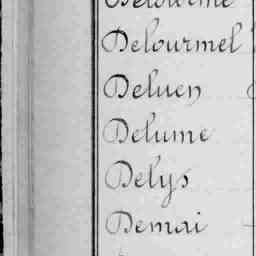 Delourme
Delourmel
Deluen
Delume
Delys
Demai